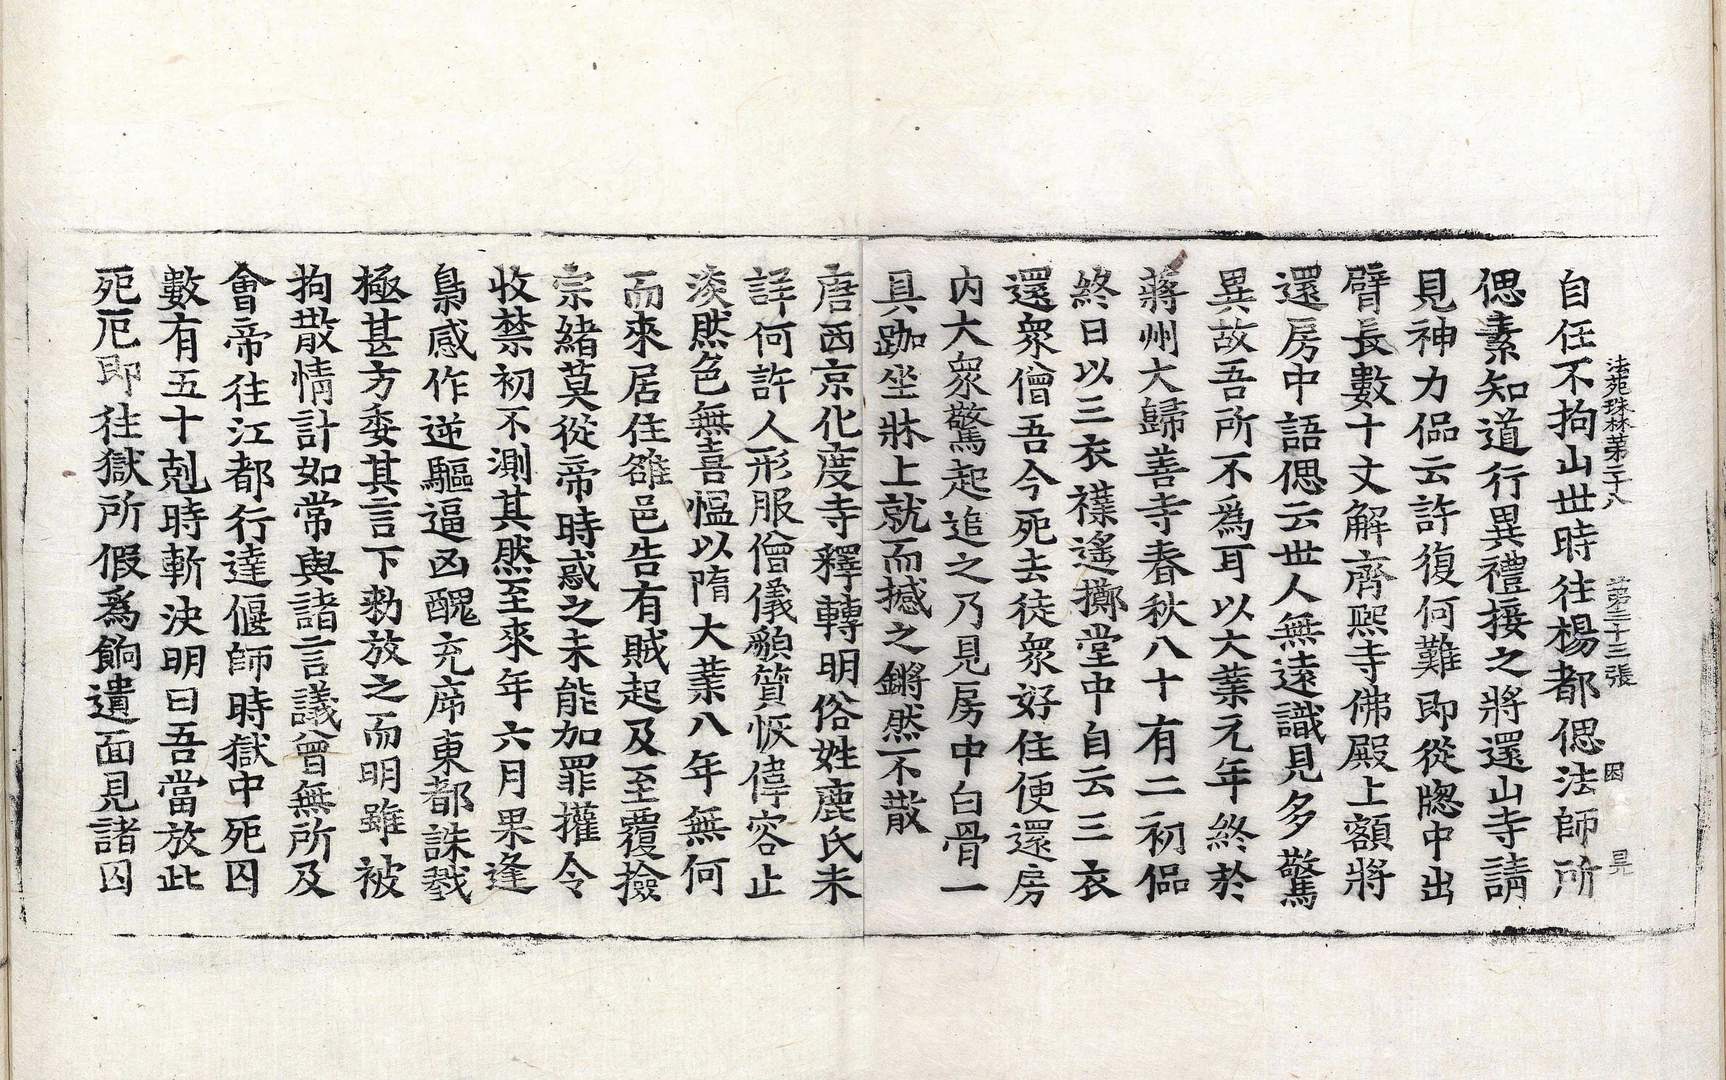 法苑珠林第二十八　第三十三張　困　呈
自任不拘山世時往楊都偲法師所
偲素知道行異禮接之將還山寺請
見神力偘云許復何難即從牎中出
臂長數十丈解齊熙寺佛殿上額將
還房中語偲云世人無遠識見多驚
異故吾所不爲耳以大業元年終於
蔣州大歸善寺春秋八十有二初偘
終日以三衣襆遙擲堂中自云三衣
還衆僧吾今死去徒衆好住便還房
内大衆驚起追之乃見房中白骨一
具跏坐牀上就而撼之鏘然不散
唐西京化度寺釋轉明俗姓鹿氏未
詳何許人形服僧儀貌質恢偉容止
淡然色無喜慍以隋大業八年無何
而來居住雒邑告有賊起及至覆撿
宗緒莫從帝時惑之未能加罪權令
收禁初不測其然至來年六月果逢
梟感作逆驅逼凶醜充席東都誅戮
極甚方委其言下勑放之而明雖被
拘散情計如常與諸言議曾無所及
會帝往江都行達偃師時獄中死囚
數有五十剋時斬決明曰吾當放此
死厄即往獄所假爲餉遺面見諸囚